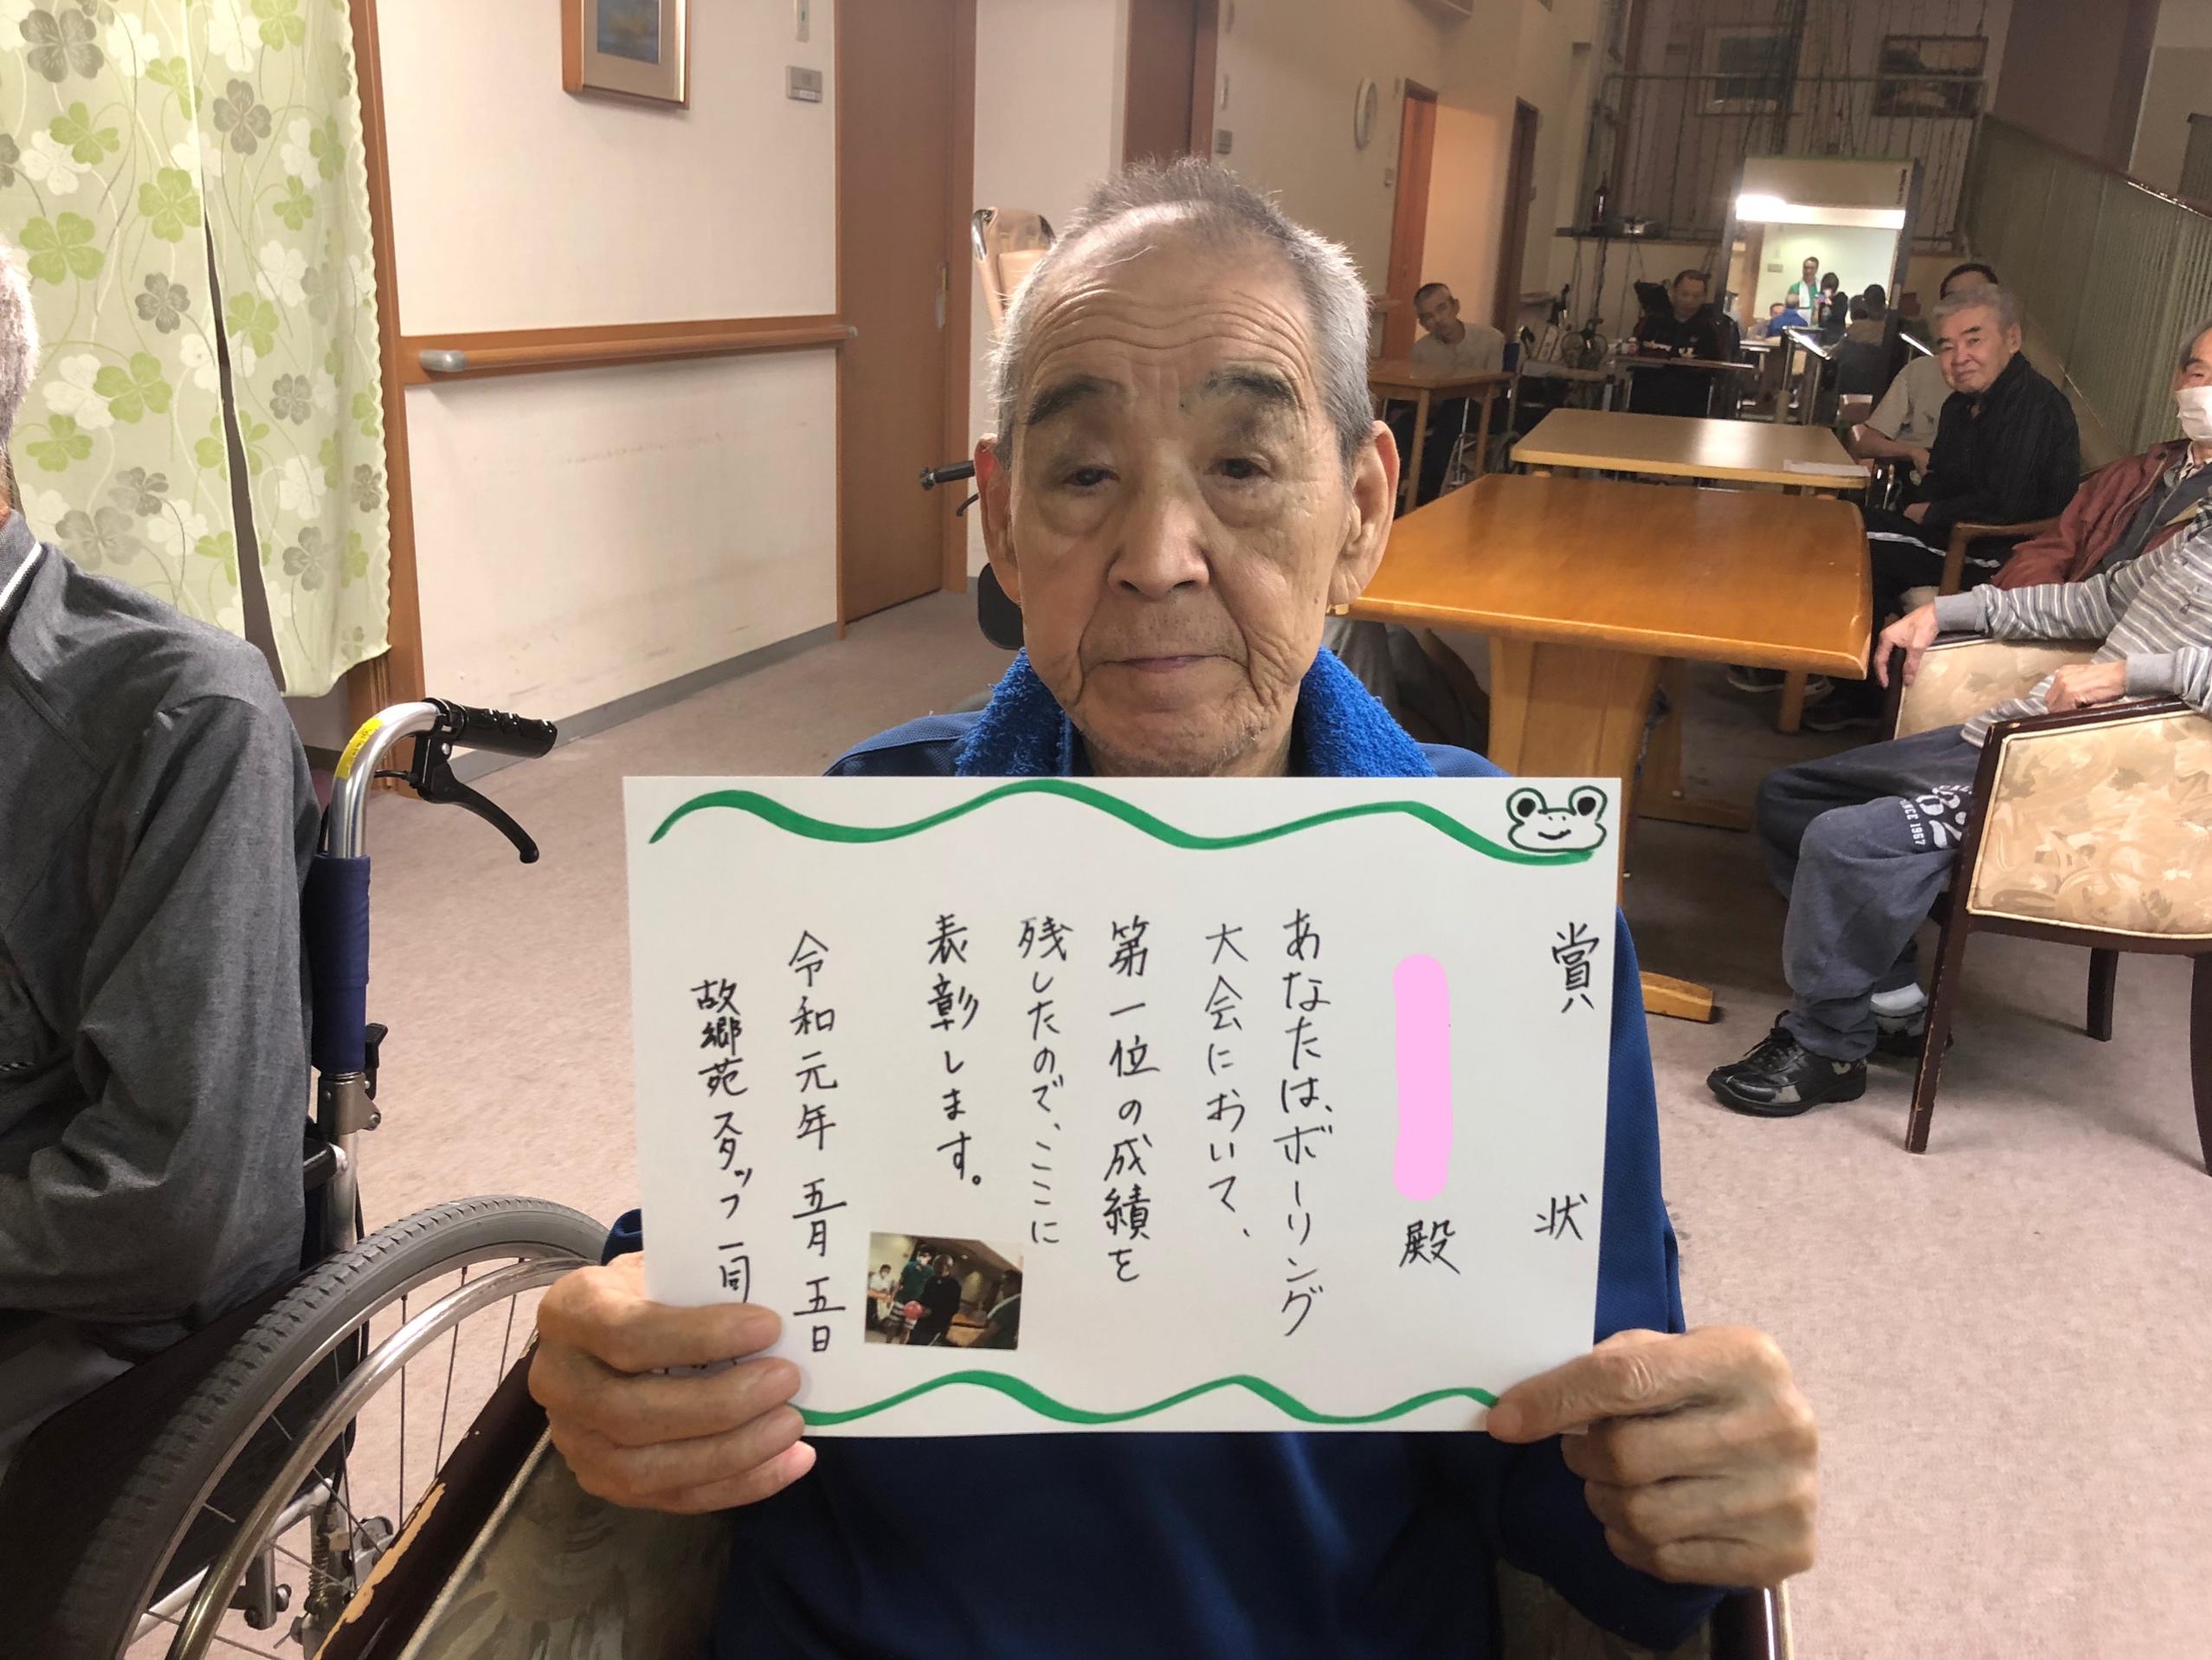 賞状
殿
あなたは、ボーリング
大会において、
第一位の成績を
残したので、ここに
表彰します。
令和元年 五月 五日
故郷苑スタッフ一同
SINCE 1967